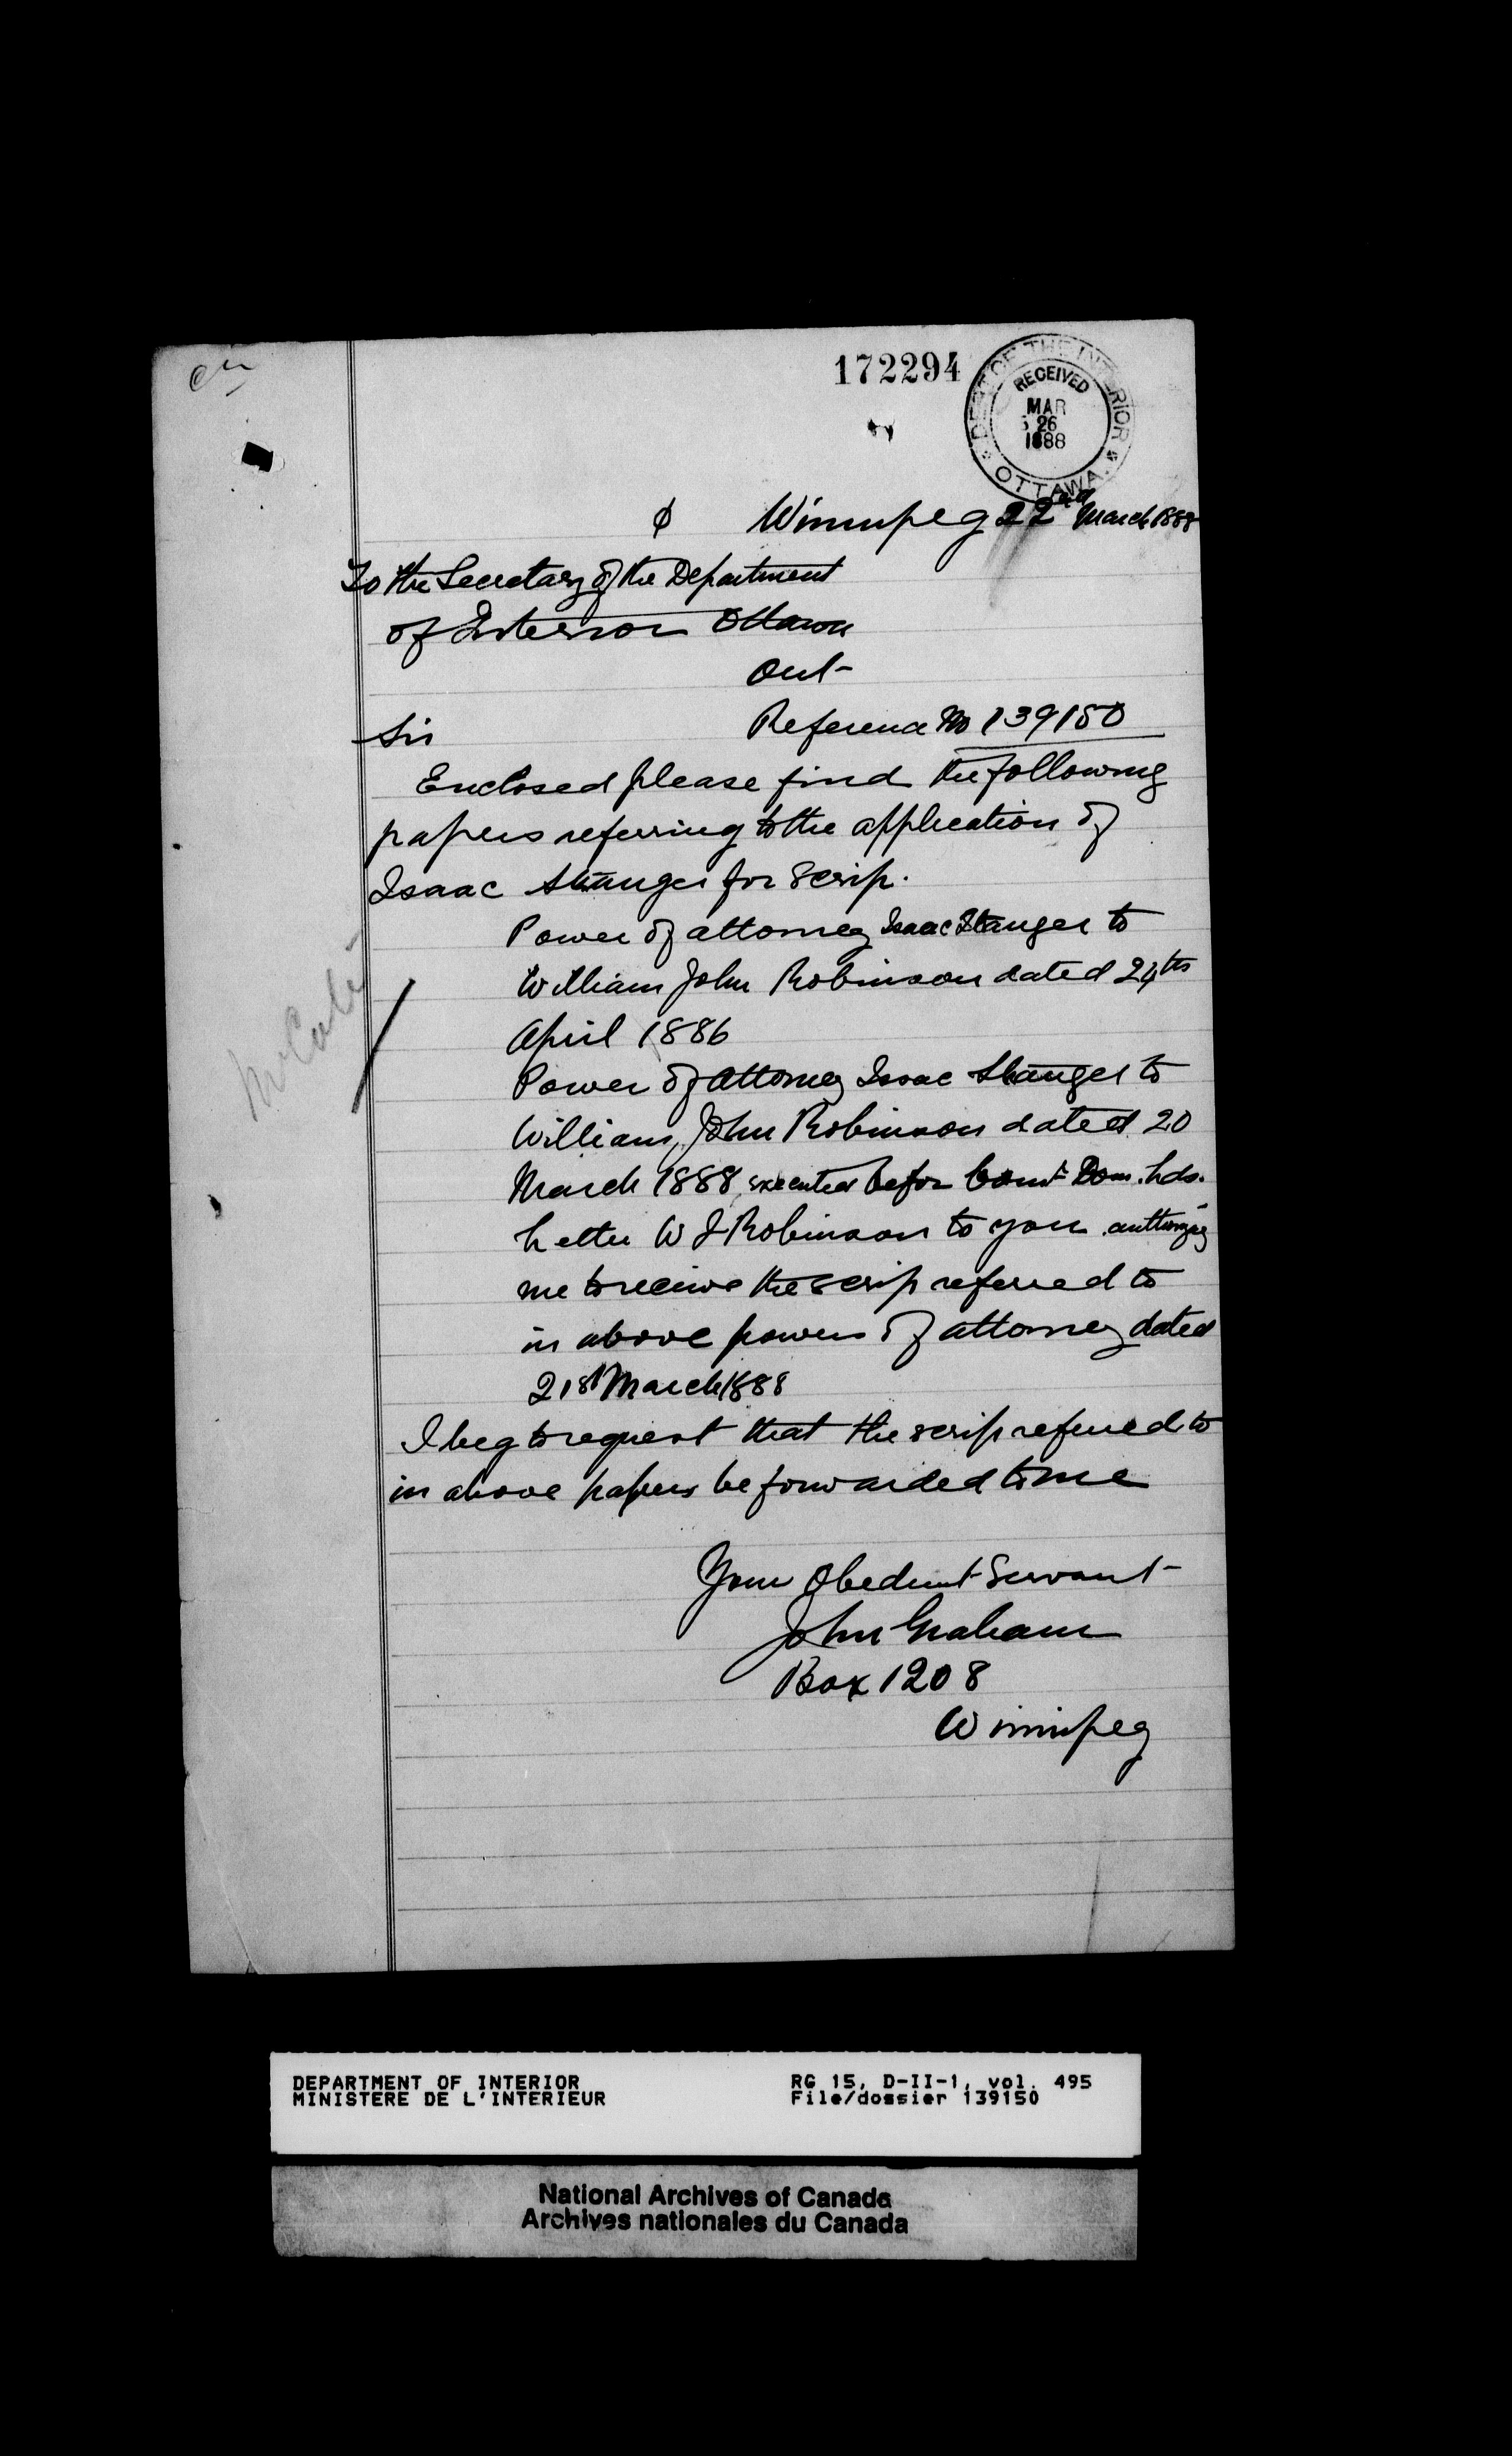 172294
DEPT OF THE INTERIOR
RECEIVED
MAR
26
1888
OTTAWA
Winnipeg 22nd March 1888
To the Secretary of the Department
of Interior Ottawa
Ont
Sir Reference No 139150
Enclosed please find the following
papers referring to the application of
Isaac Stanger for Scrip.
Power of attorney Isaac Stanger to
William John Robinson dated 24th
April 1886
Power of attorney Isaac Stanger to
William John Robinson dated 20
March 1888 executed before Comr Dom. Lds.
Letter W J Robinson to you authorizing
me to receive the scrip referred to
in above powers of attorney dated
21st March 1888
I beg to request that the scrip referred to
in above papers be forwarded to me
Your Obedient Servant
John Graham
Box 1208
Winnipeg
DEPARTMENT OF INTERIOR RG 15, D-II-1, vol. 495
MINISTERE DE L'INTERIEUR File/dossier 139150
National Archives of Canada
Archives nationales du Canada